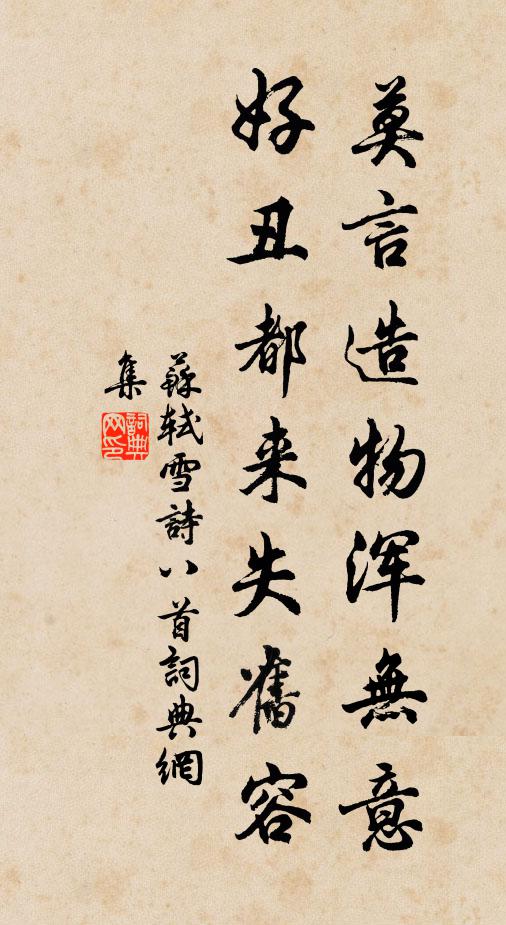 莫言造物浑無意
好丑都来失舊容
蘇軾雪詩八首詞典網
集
詞典
网印